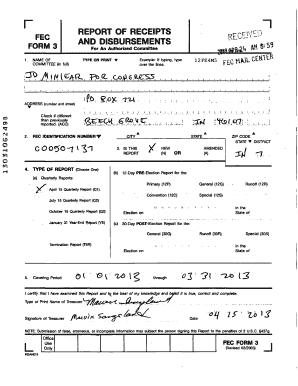 FEC
FORM 3
REPORT OF RECEIPTS
AND DISBURSEMENTS
For An Authorized Committee
RECEIVED
AM 8:59
FEC MAIL CENTER
1. NAME OF
COMMITTEE (in full)
TYPE OR PRINT
Example: If typing, type
over the lines.
12FE4M5
JD MINIEAR FOR CONGRESS
ADDRESS (number and street)
P.O. BOX 74
Check if different
than previously
reported. (ACC)
BEECH GROVE IN 46107
2. FEC IDENTIFICATION NUMBER
CITY
STATE
ZIP CODE
STATE DISTRICT
C00507137
3. IS THIS
REPORT
X NEW
(N) OR
AMENDED
(A)
IN 7
4. TYPE OF REPORT (Choose One)
(a) Quarterly Reports:
X April 15 Quarterly Report (Q1)
July 15 Quarterly Report (Q2)
October 15 Quarterly Report (Q3)
January 31 Year-End Report (YE)
Termination Report (TER)
(b) 12-Day PRE-Election Report for the:
Primary (12P) General (12G) Runoff (12R)
Convention (12C) Special (12S)
Election on
in the
State of
(c) 30-Day POST-Election Report for the:
General (30G) Runoff (30R) Special (30S)
Election on
in the
State of
5. Covering Period 01 01 2013 through 03 31 2013
I certify that I have examined this Report and to the best of my knowledge and belief it is true, correct and complete.
Type or Print Name of Treasurer
Signature of Treasurer
Date 04 15 2013
NOTE: Submission of false, erroneous, or incomplete information may subject the person signing this Report to the penalties of 2 U.S.C. §437g.
Office
Use
Only
FEC FORM 3
(Revised 02/2003)
FE6AN018
13031062498